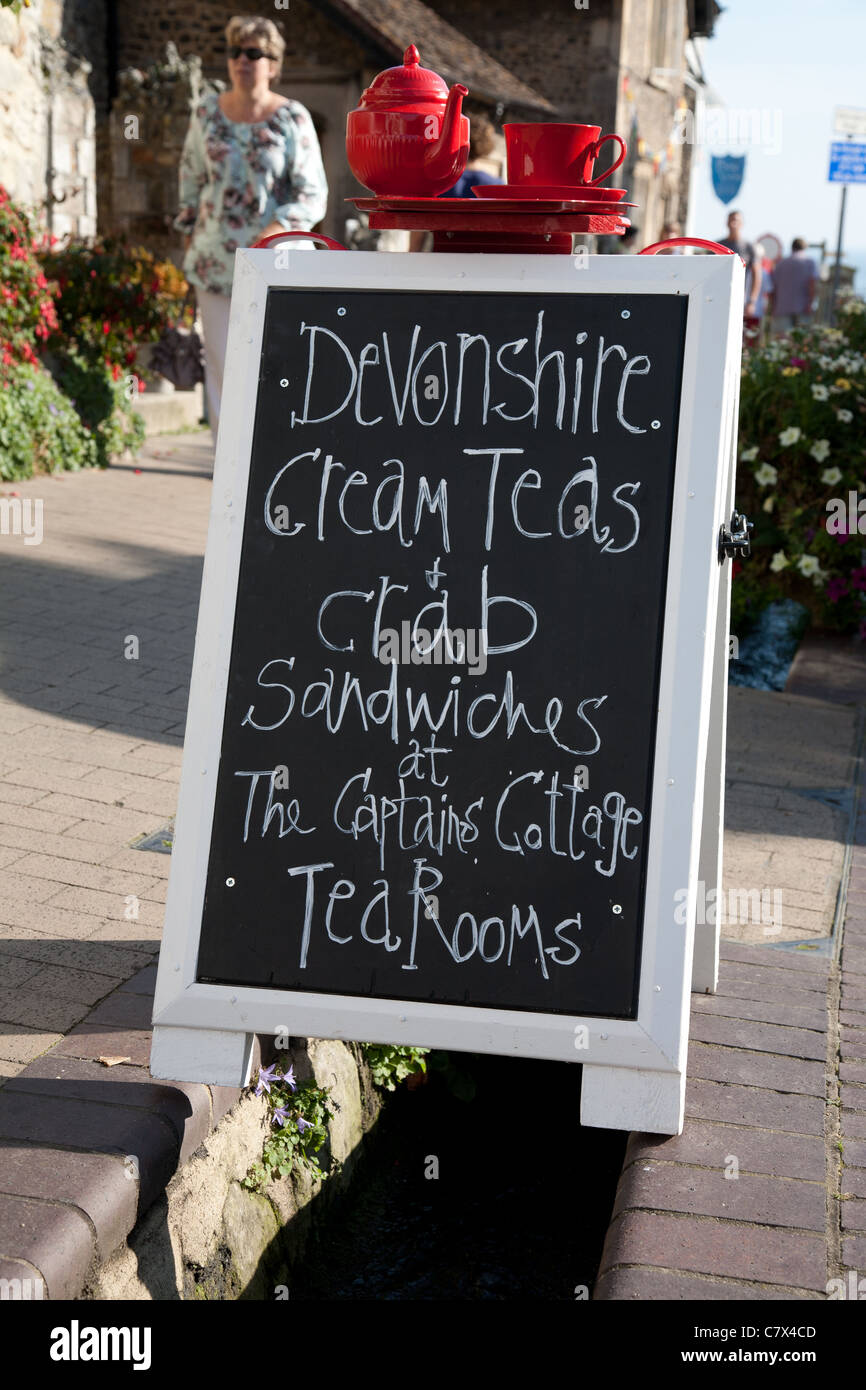 Devonshire
Cream Teas
+
crab
Sandwiches
at
The Captains Cottage
Tea Rooms
alamy
Image ID: C7X4CD
www.alamy.com